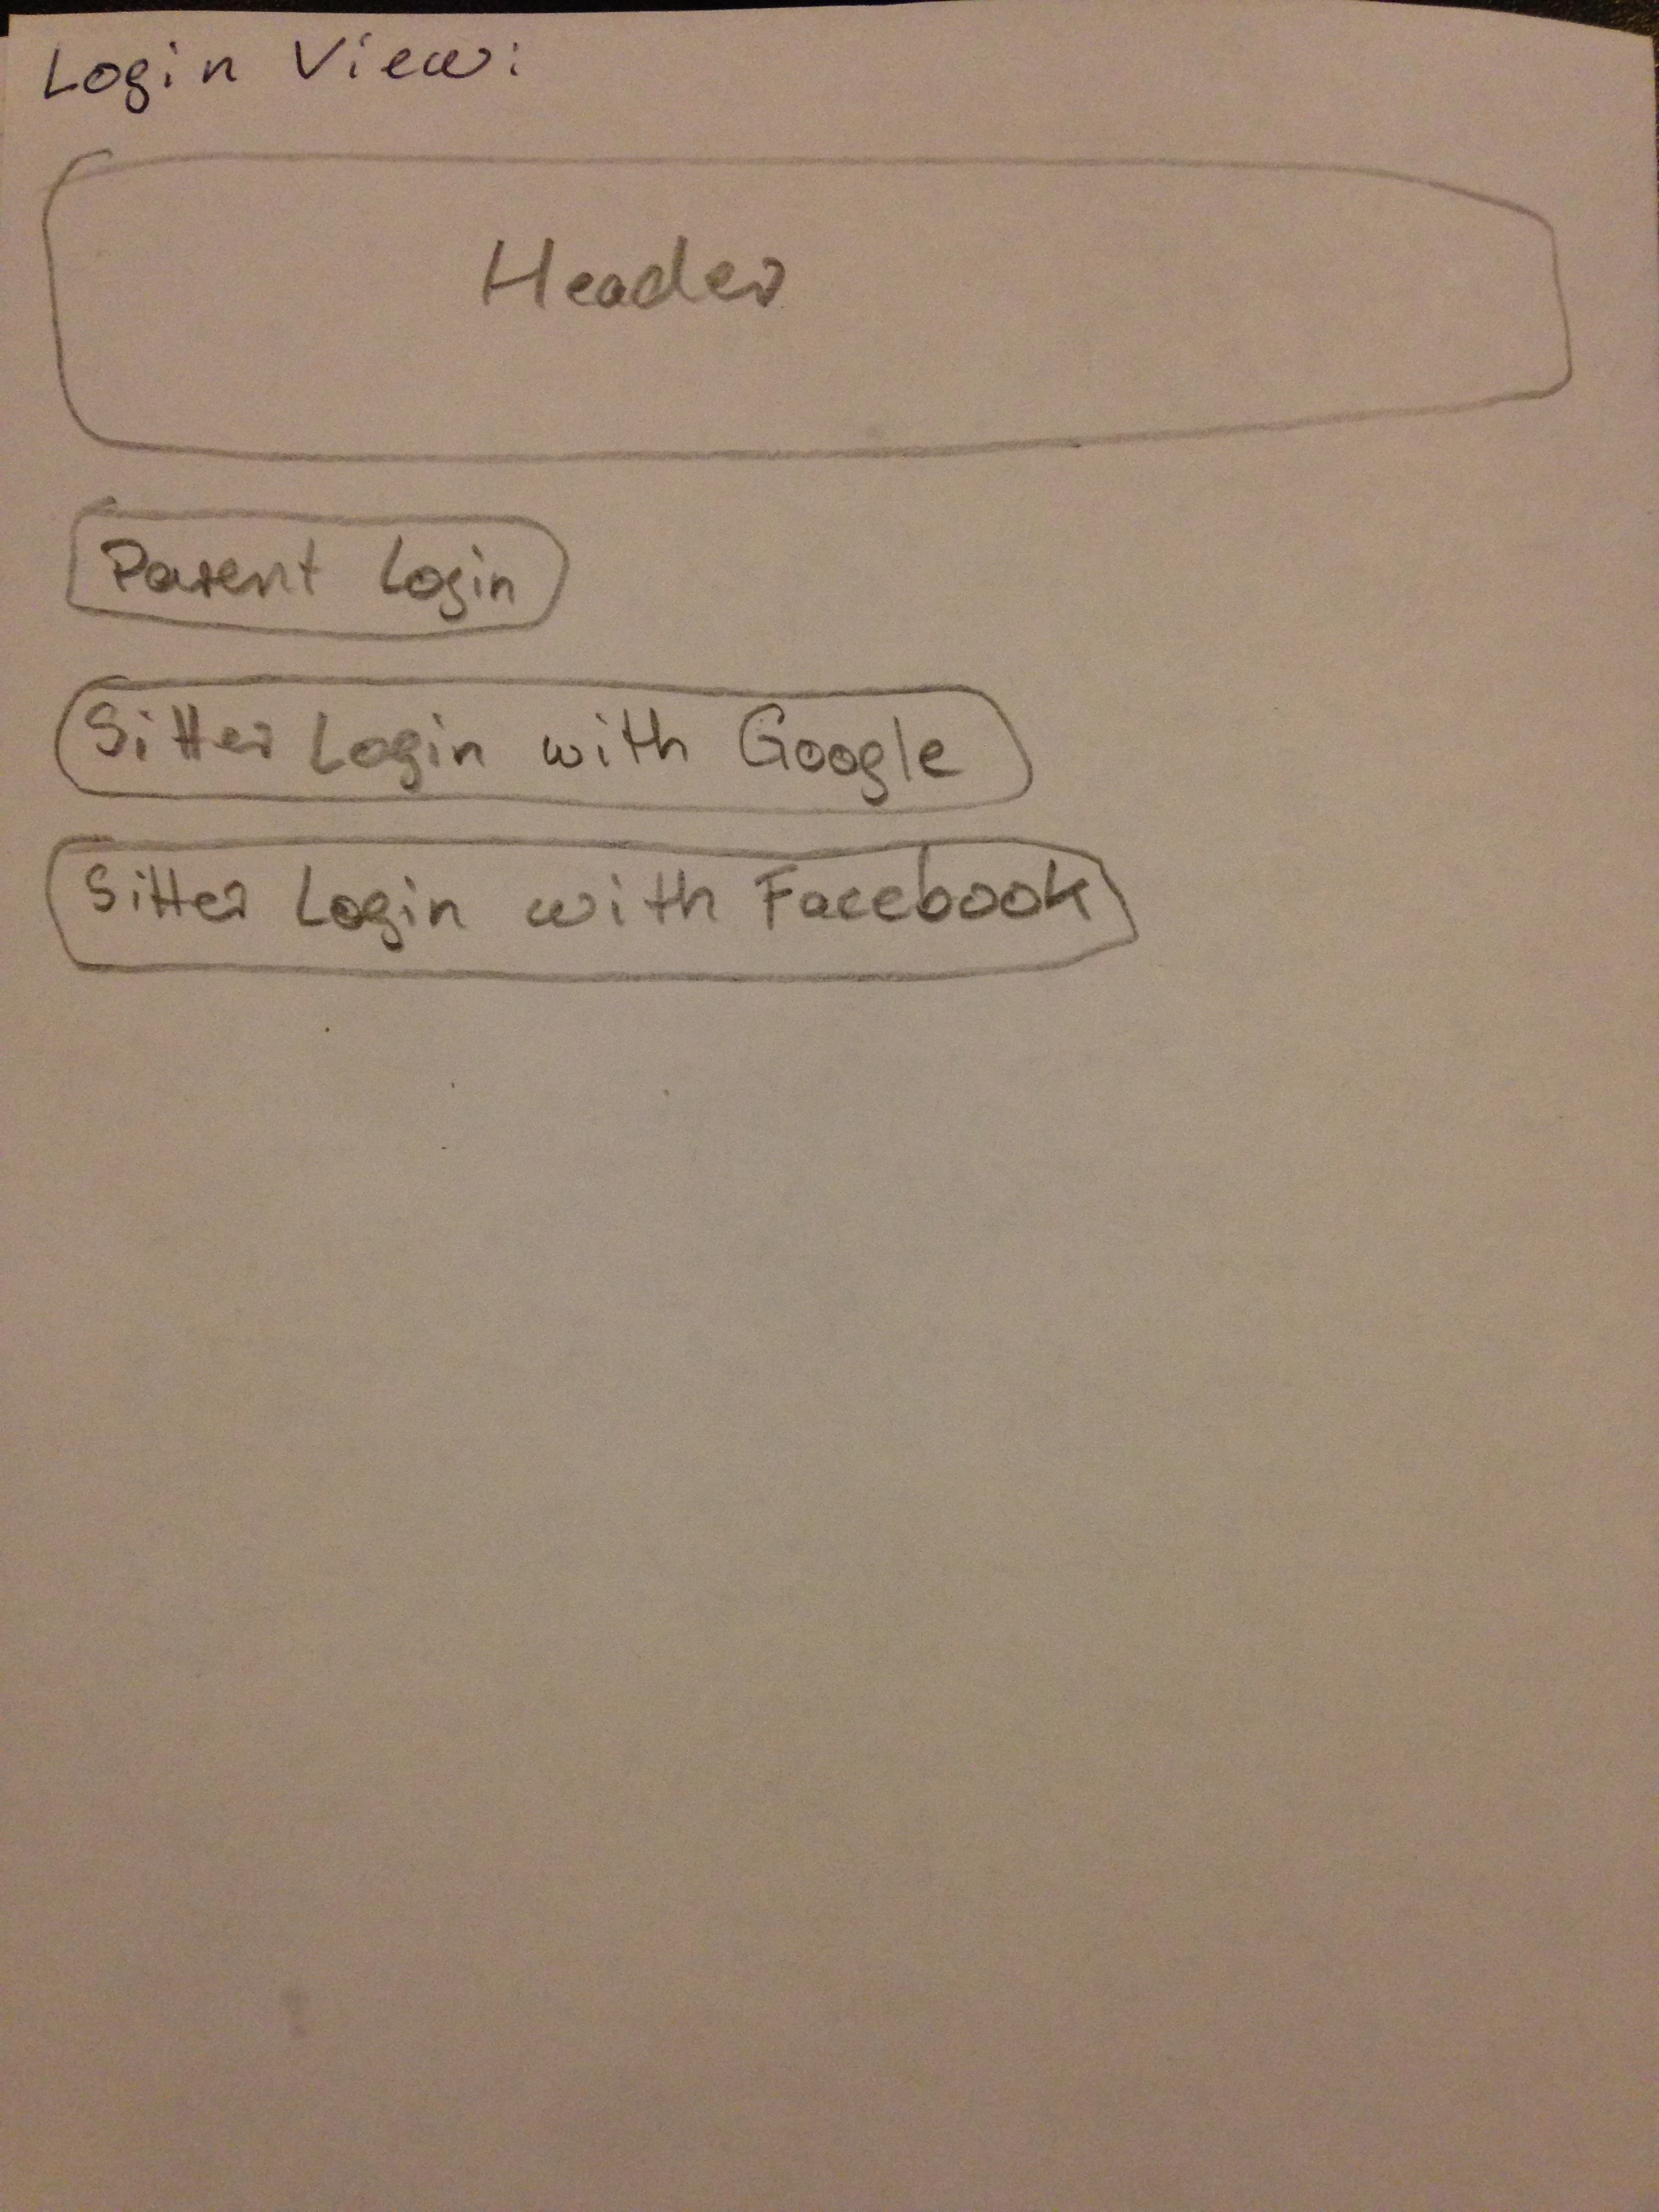 Login View:
Header
Parent Login
Sitter Login with Google
Sitter Login with Facebook